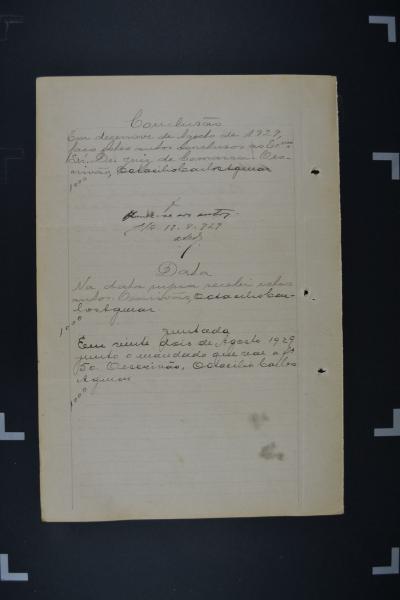 Conclusão
Em dezenove de Agosto de 1929,
faço estes autos conclusos ao Exmo.
Sr. Dr. Juiz de Comarca. Escri-
vão, Octacilio Carlos Aguiar
1000
Junte-se aos autos.
19-8-929
Data
Na data supra recebi estes
autos. O escrivão, Octacilio Car-
los Aguiar
1000
Juntada
Em vinte dois de Agosto 1929
junto o mandado que vae a fl
50. O escrivão, Octacilio Carlos
Aguiar
1000